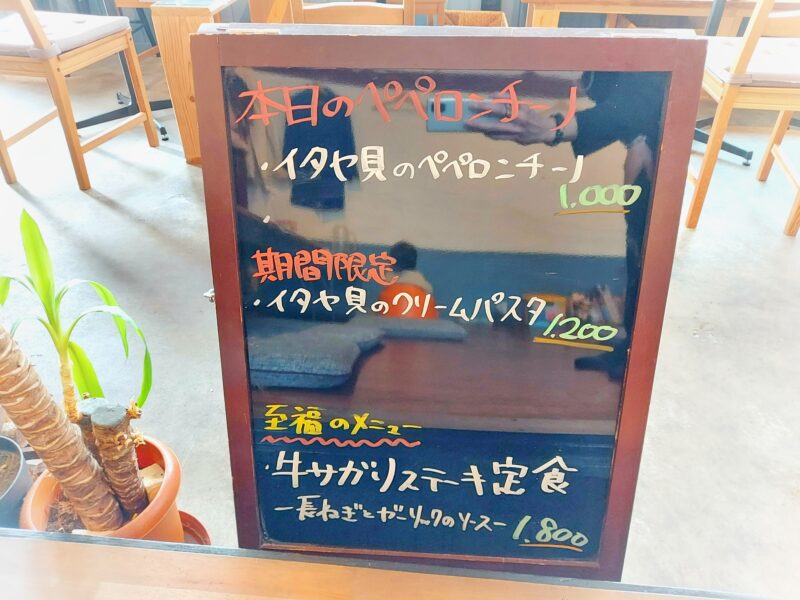 本日のペペロンチーノ
・イタヤ貝のペペロンチーノ
1.000
・
期間限定
・イタヤ貝のクリームパスタ
1.200
至福のメニュー
・牛サガリステーキ定食
ー長ねぎとガーリックのソースー
1.800